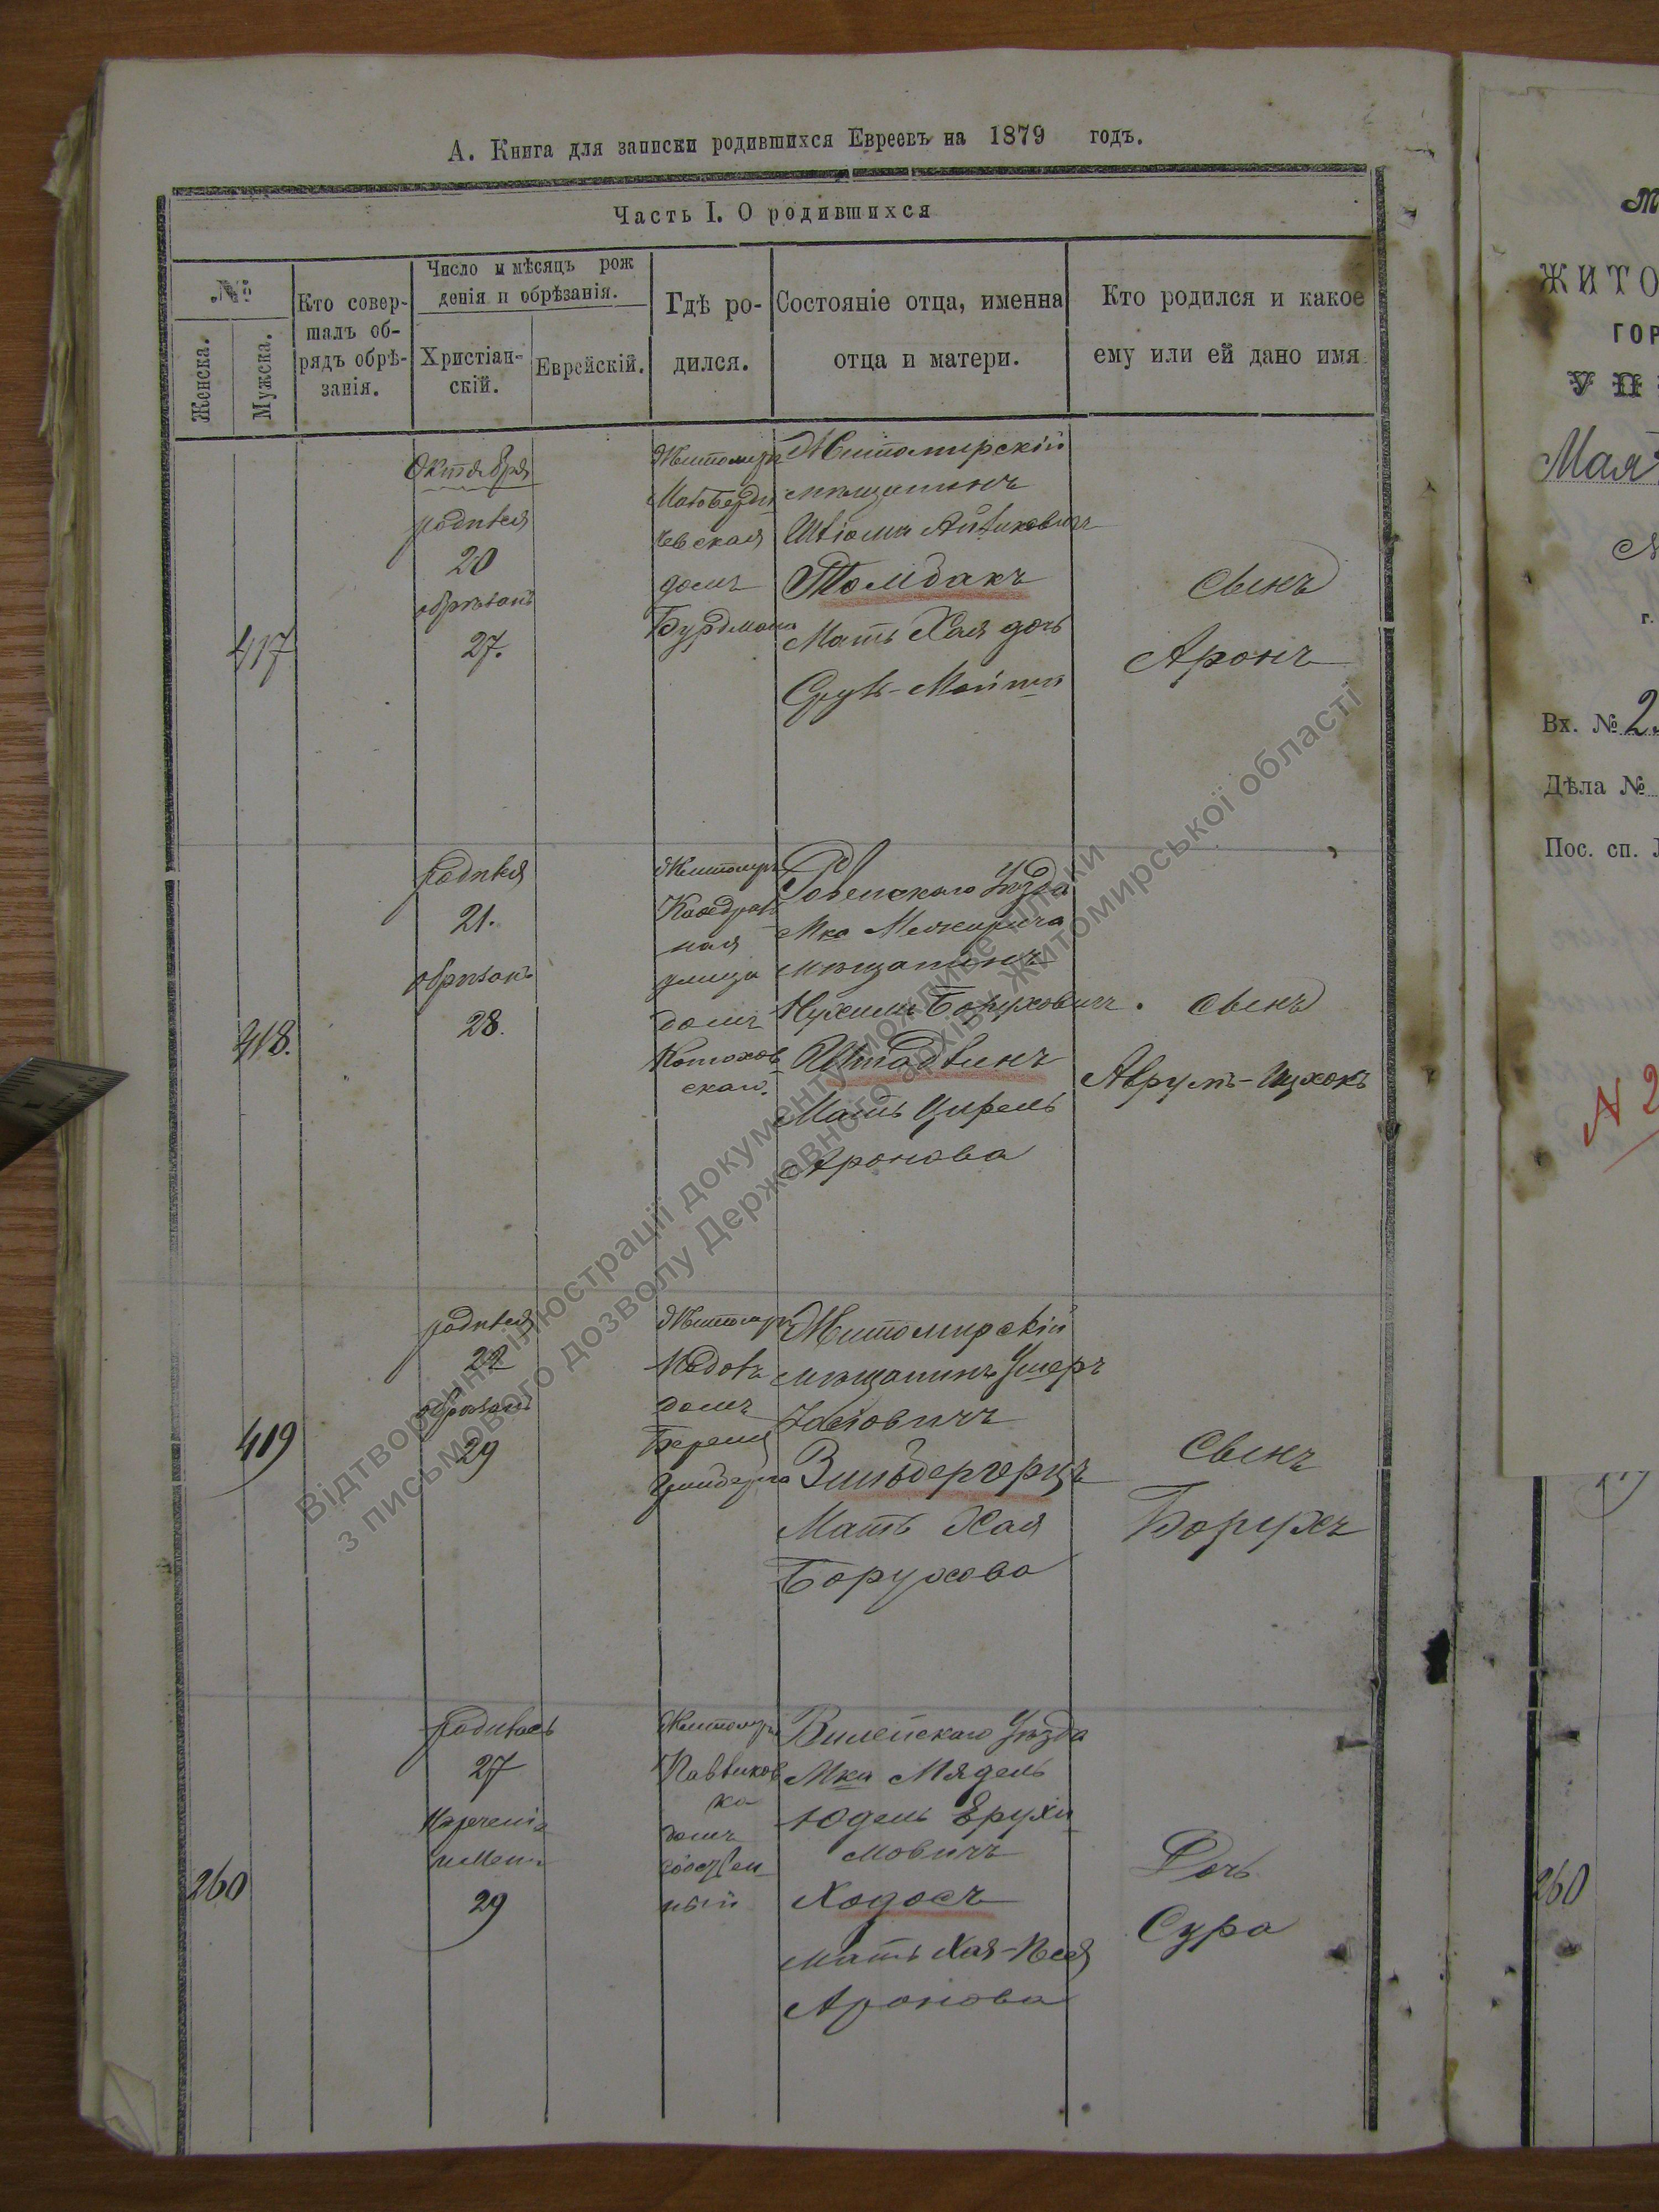 А. Книга для записки родившихся Евреевъ на 1879 годъ.
Часть I. О родившихся
№
Женска.
Мужска.
Кто совер-
шалъ об-
рядъ обрѣ-
занія.
Число и мѣсяцъ рож
денія и обрѣзанія.
Христіан-
скій.
Еврейскій.
Гдѣ ро-
дился.
Состояніе отца, именна
отца и матери.
Кто родился и какое
ему или ей дано имя
417
Октября
родился
20
обрѣзанъ
27.
Житомиръ
домъ
Бурдмана
Житомирскій
мѣщанинъ
Мать Хая дочь
Сынъ
Аронъ
418.
родился
21.
обрѣзанъ
28.
Житомиръ
Каѳедраль
ная
улица
домъ
скаго.
Ровенскаго Уѣзда
Мка Межирича
мѣщанинъ
Нухимъ Боруховичъ
Штадвинъ
Мать Цирель
Аронова
Сынъ
Аврумъ-Ицхокъ
419
родился
22
обрѣзанъ
29
Житомиръ
домъ
Житомирскій
мѣщанинъ Ушеръ
Зильбергерцъ
Мать Хая
Борухова
Сынъ
Борухъ
260
родилась
27
нареченіе
имени
29
Житомиръ
Павликов
ка
домъ
собствен
ный
Вилейскаго Уѣзда
Мка Мядель
Юдель Ерухи
мовичъ
Ходосъ
Мать Хая-Песя
Аронова
Дочь
Сура
ЖИТО
ГОР
УП
Мая
г.
Вх. № 2
Дѣла №
Пос. сп.
N 2
260
Відтворення ілюстрації документу можливе тільки
з письмового дозволу Державного архіву Житомирської області